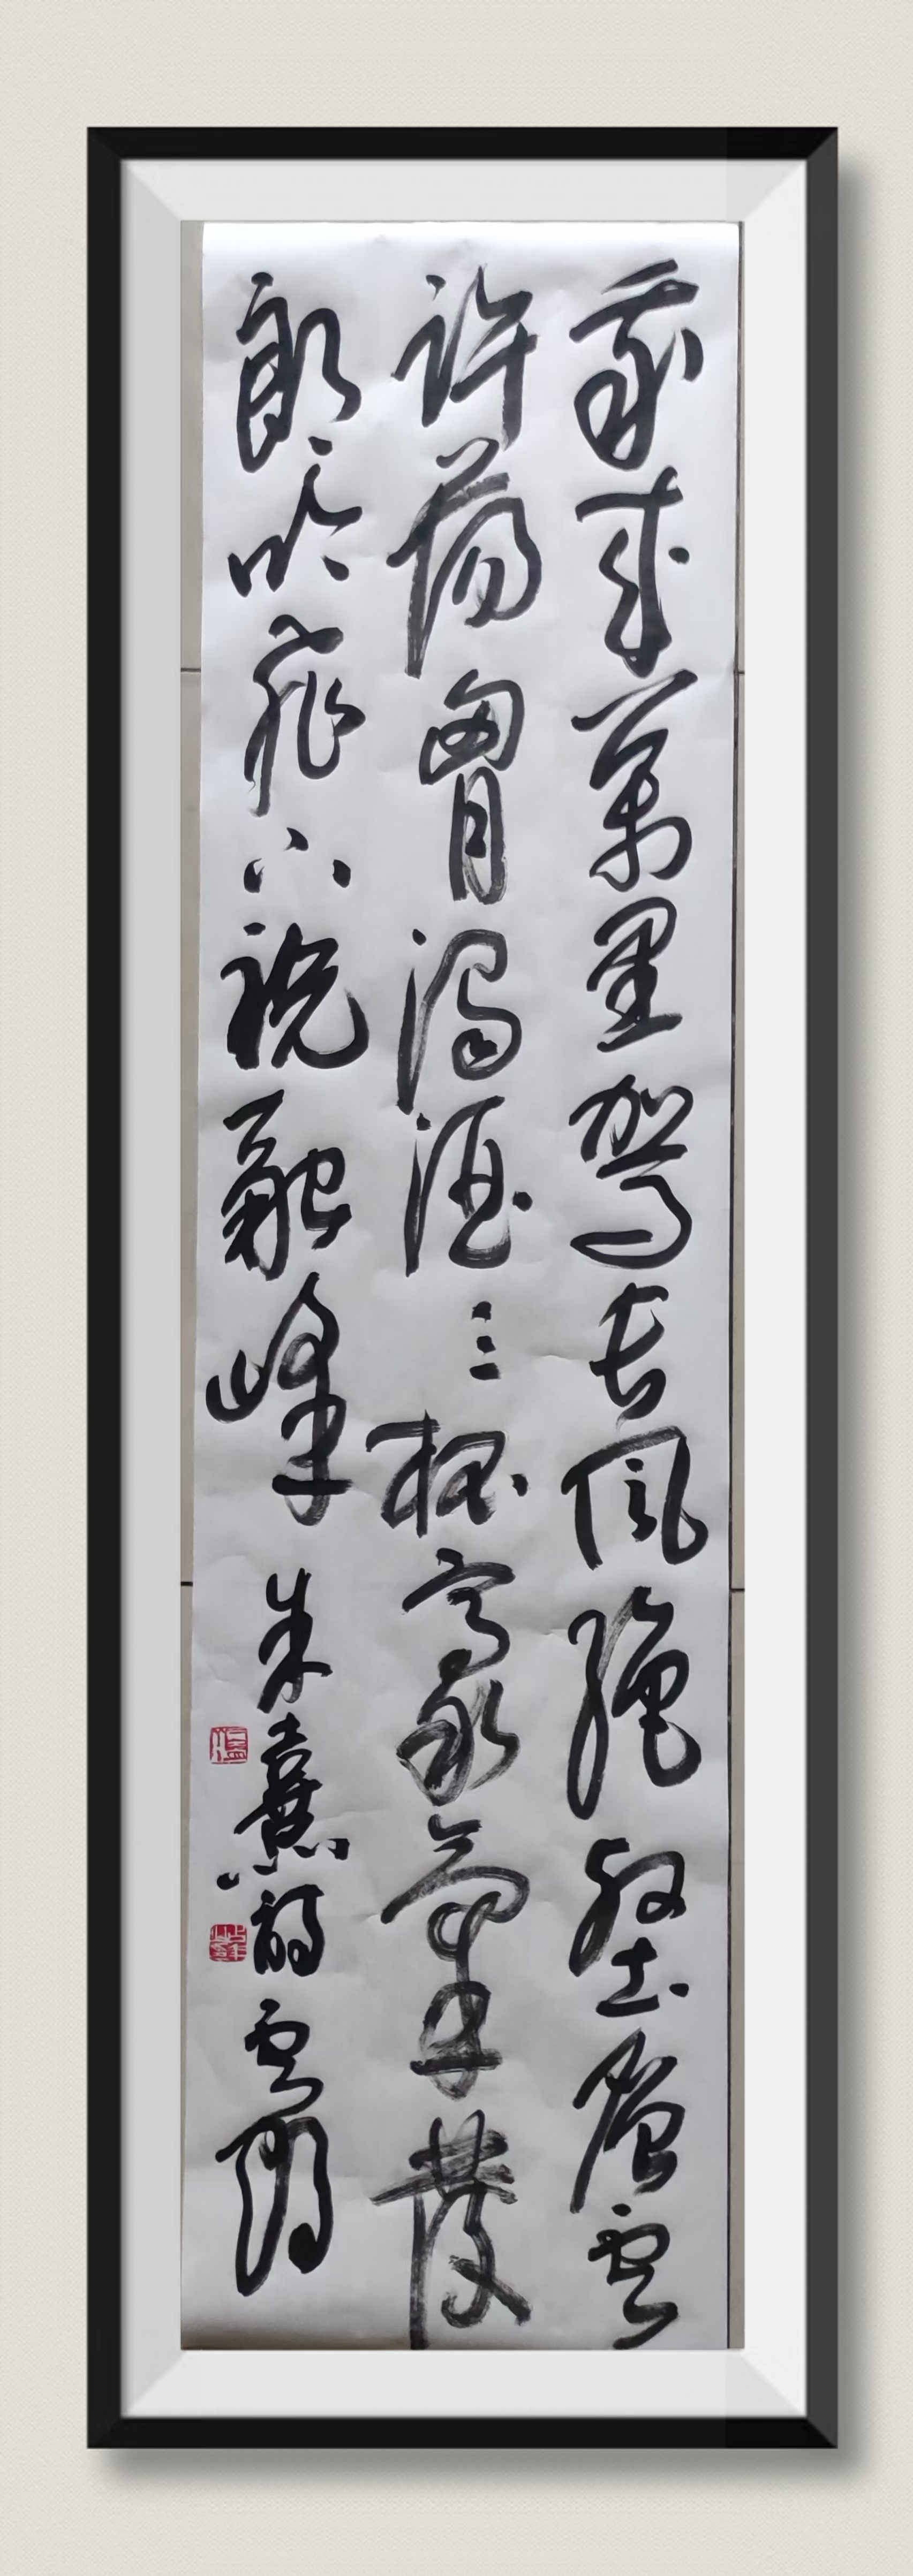 我來萬里駕長風絕壑層雲
許蕩胸濁酒三杯豪氣發
朗吟飛下祝融峰 朱熹詩 雲